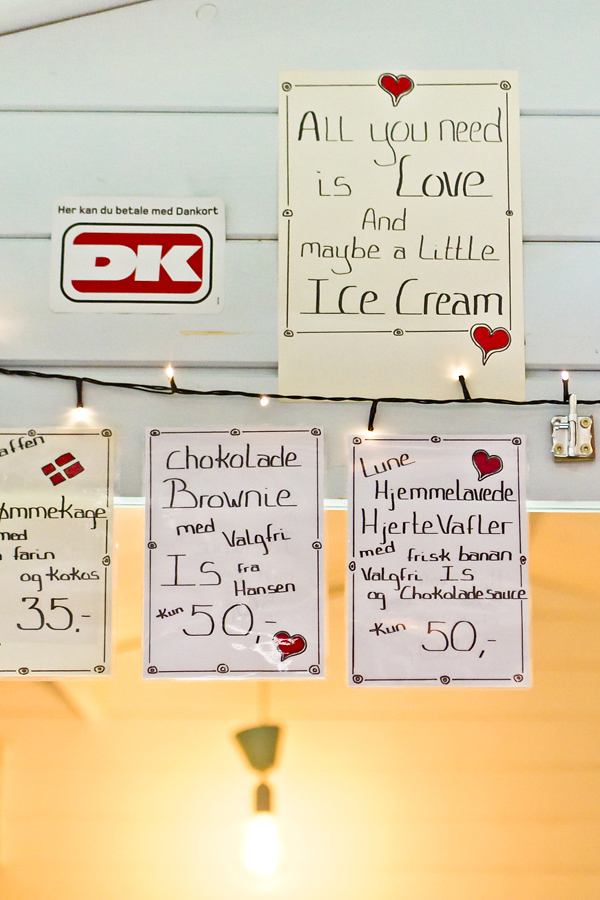 All you need
is Love
And
maybe a Little
Ice Cream
Her kan du betale med Dankort
DK
affen
ømmekage
med
farin
og Kokos
35,-
Chokolade
Brownie
med Valgfri
Is fra
Hansen
Kun 50,-
Lune
Hjemmelavede
HjerteVafler
med frisk banan
Valgfri Is
og Chokoladesauce
Kun 50,-